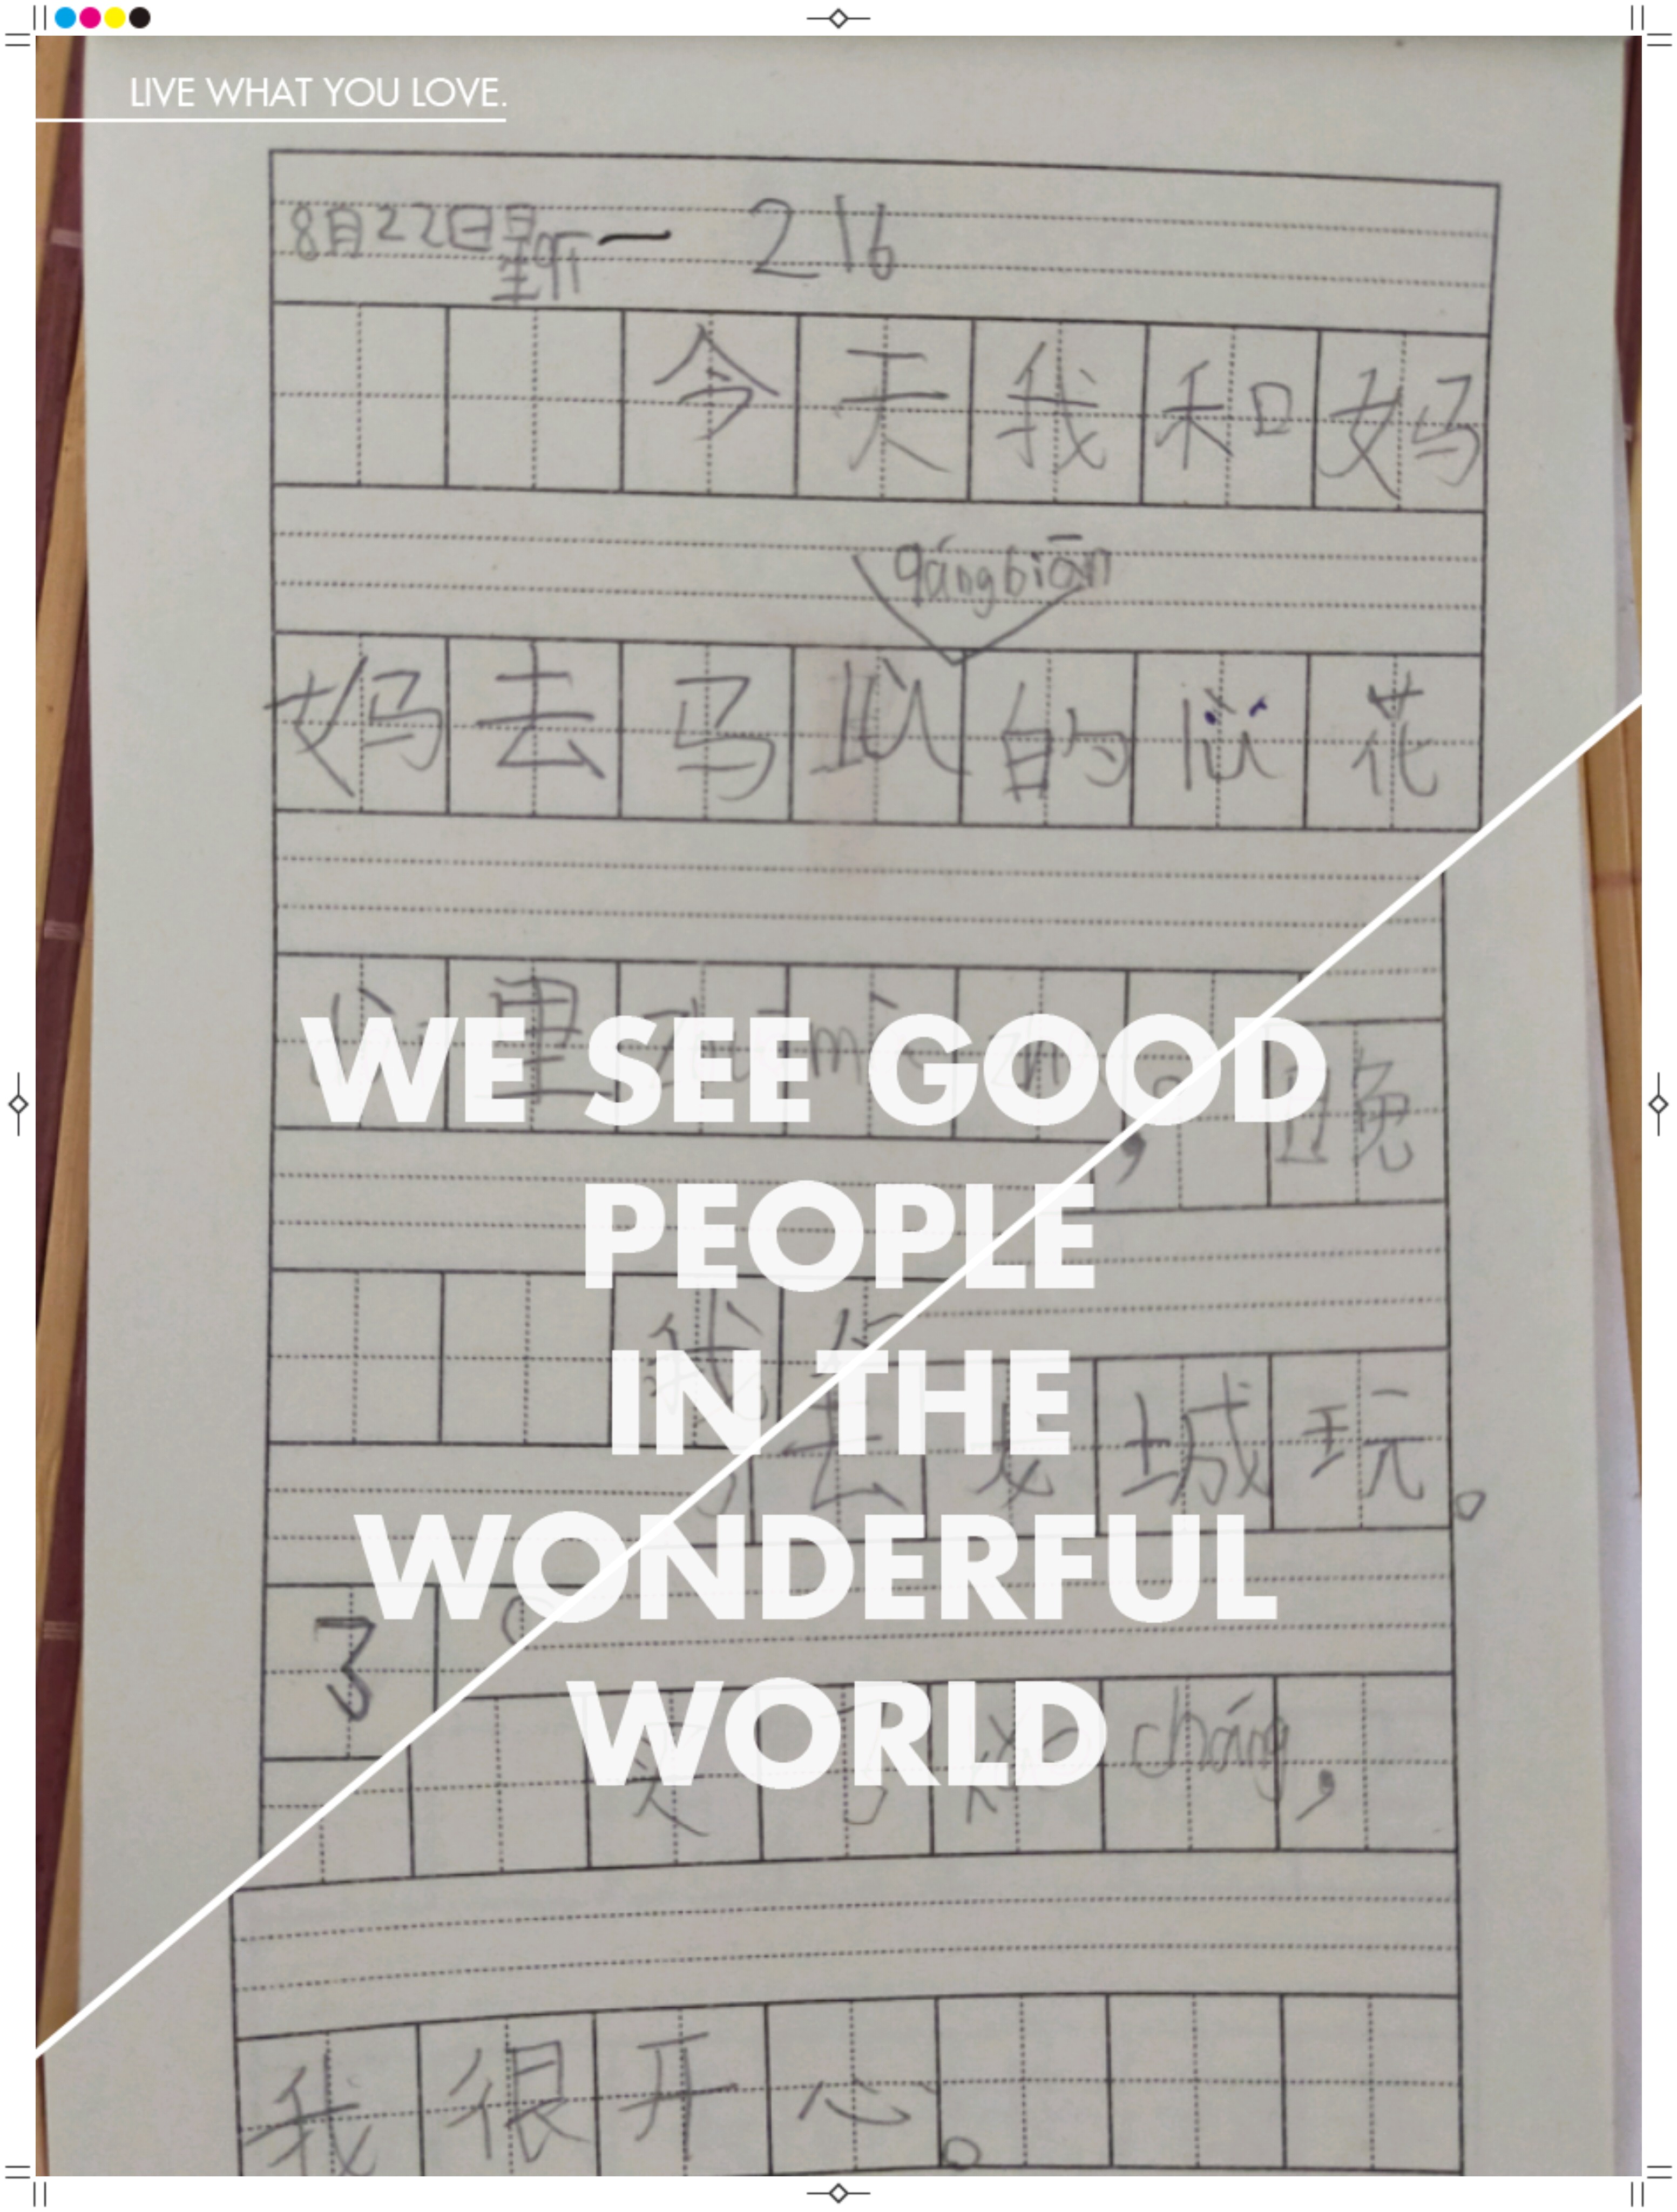 LIVE WHAT YOU LOVE.
8月22日星期一 216
今天我和妈
gángbiān
妈去马的lǜ花
里 , 晚
WE SEE GOOD
PEOPLE
我
IN THE
去 城玩。
WONDERFUL
了。
WORLD
了 cháng,
我很开心。